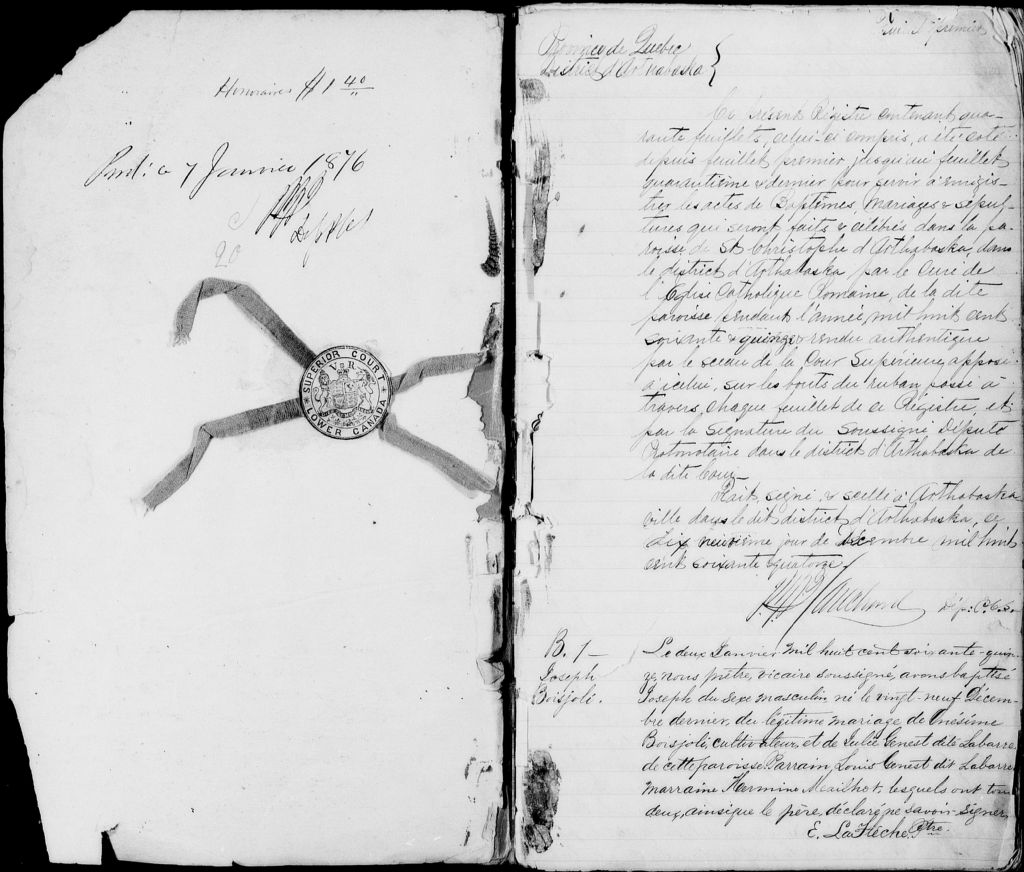 Honoraires $1 40
Prod: ce 7 Janvier 1876
Dep P C S
20
SUPERIOR COURT
V R
LOWER CANADA
Feuillet premier
Province de Quebec
District d'Arthabaska
Ce présent Régistre contenant qua-
rante feuillets, celui-ci compris, a été coté
depuis feuillet premier jusqu'au feuillet
quarantième & dernier pour servir à enregis-
trer les actes de Baptêmes, Mariages & Sépul-
tures qui seront faits & célébrés dans la pa-
roisse de St Christophe d'Arthabaska, dans
le district d'Arthabaska par le Curé de
l'Eglise Catholique Romaine, de la dite
paroisse pendant l'année mil huit cent
soixante & quinze & rendu authentique
par le sceau de la Cour Supérieure apposé
à icelui, sur les bouts du ruban passé à
travers chaque feuillet de ce Régistre, et
par la signature du soussigné Député
Protonotaire dans le district d'Arthabaska de
la dite Cour.
Fait, signé & scellé à Arthabaska
ville dans le dit district d'Arthabaska, ce
dix neuvième jour de Décembre mil huit
cent soixante & quatorze.
Dép: P. C. S.
B. 1 –
Joseph
Boisjoli.
Le deux Janvier mil huit cent soixante-quin-
ze, nous prêtre, vicaire soussigné, avons baptisé
Joseph du sexe masculin né le vingt neuf Décem-
bre dernier, du légitime mariage de Onésime
Boisjoli, cultivateur, et de Julie Genest dite Labarre
de cette paroisse. Parrain, Louis Genest dit Labarre
marraine Hermine Mailhot, lesquels ont tous
deux, ainsi que le père, déclaré ne savoir signer.
E. La Flèche Ptre.